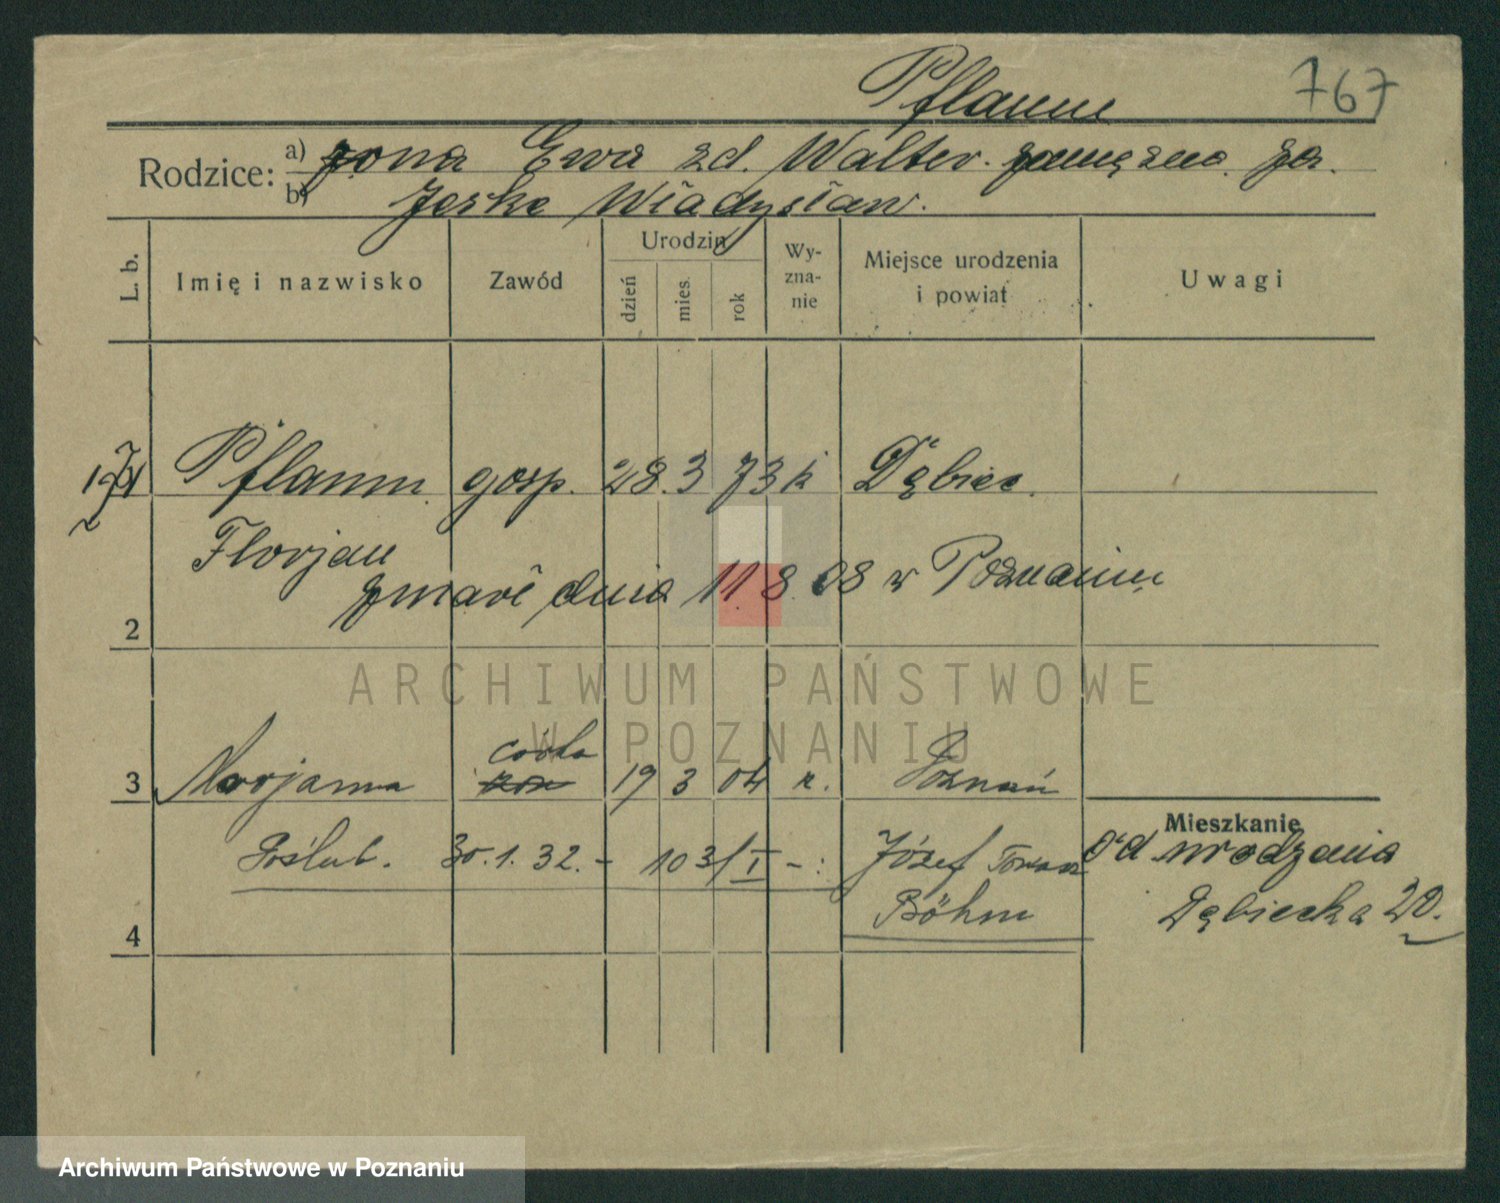 Pflaum
767
Rodzice: a) żona Ewa zd. Walter. zamężna za.
b) Jeske Władysław.
L. b.
Imię i nazwisko
Zawód
Urodzin
dzień
mies.
rok
Wy-
zna-
nie
Miejsce urodzenia
i powiat
Uwagi
Pflaum gosp. 28. 3 73 k Dębiec.
Florjan
zmarł dnia 11. 8. 08 w Poznaniu
2
córka
3 Marjanna 19 3 04 k. Poznań
Mieszkanie
Poślub. 30. 1. 32. - 103/I - : Józef Od urodzenia
Böhm Dębiecka 20.
4
ARCHIWUM PAŃSTWOWE
W POZNANIU
Archiwum Państwowe w Poznaniu